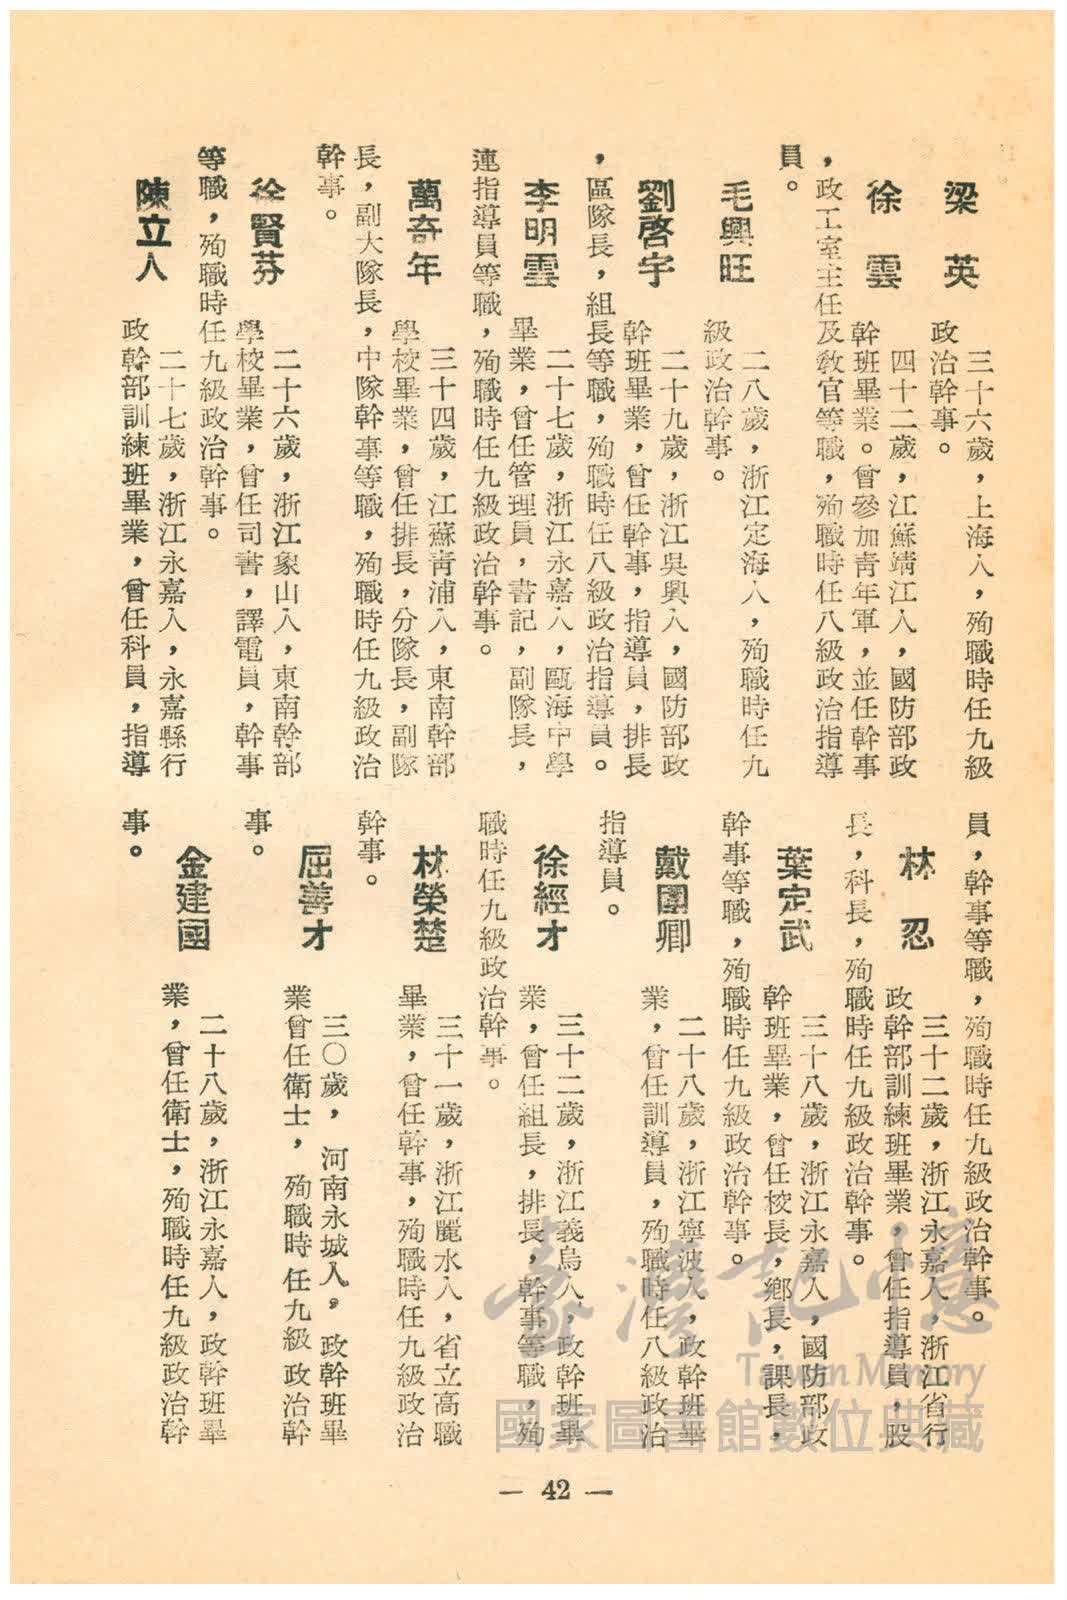 梁英
三十六歲，上海人，殉職時任九級
政治幹事。
徐雲
四十二歲，江蘇靖江人，國防部政
幹班畢業。曾參加青年軍，並任幹事
，政工室主任及敎官等職，殉職時任八級政治指導
員。
毛興旺
二八歲，浙江定海人，殉職時任九
級政治幹事。
劉啓宇
二十九歲，浙江吳興人，國防部政
幹班畢業，曾任幹事，指導員，排長
，區隊長，組長等職，殉職時任八級政治指導員。
李明雲
二十七歲，浙江永嘉人，甌海中學
畢業，曾任管理員，書記，副隊長，
連指導員等職，殉職時任九級政治幹事。
萬奇年
三十四歲，江蘇靑浦人，東南幹部
學校畢業，曾任排長，分隊長，副隊
長，副大隊長，中隊幹事等職，殉職時任九級政治
幹事。
徐賢芬
二十六歲，浙江象山人，東南幹部
學校畢業，曾任司書，譯電員，幹事
等職，殉職時任九級政治幹事。
陳立人
二十七歲，浙江永嘉人，永嘉縣行
政幹部訓練班畢業，曾任科員，指導
員，幹事等職，殉職時任九級政治幹事。
林忍
三十二歲，浙江永嘉人，浙江省行
政幹部訓練班畢業，曾任指導員，股
長，科長，殉職時任九級政治幹事。
葉定武
三十八歲，浙江永嘉人，國防部政
幹班畢業，曾任校長，鄕長，課長，
幹事等職，殉職時任九級政治幹事。
戴國卿
二十八歲，浙江寧波人，政幹班畢
業，曾任訓導員，殉職時任八級政治
指導員。
徐經才
三十二歲，浙江義烏人，政幹班畢
業，曾任組長，排長，幹事等職，殉
職時任九級政治幹事。
林榮楚
三十一歲，浙江麗水人，省立高職
畢業，曾任幹事，殉職時任九級政治
幹事。
屈善才
三〇歲，河南永城人。政幹班畢
業曾任衛士，殉職時任九級政治幹
事。
金建國
二十八歲，浙江永嘉人，政幹班畢
業，曾任衛士，殉職時任九級政治幹
事。
臺灣記憶
Taiwan Memory
國家圖書館數位典藏
— 42 —